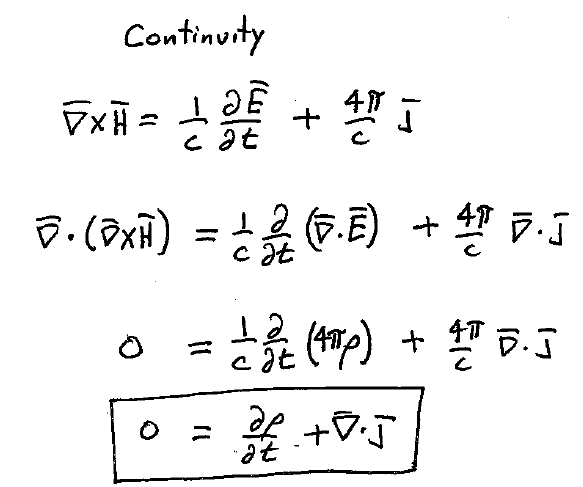 Continuity
∇̅×H̅ = 1/c ∂E̅/∂t + 4π/c J̅
∇̅·(∇̅×H̅) = 1/c ∂/∂t (∇̅·E̅) + 4π/c ∇̅·J̅
0 = 1/c ∂/∂t (4πρ) + 4π/c ∇̅·J̅
0 = ∂ρ/∂t + ∇̅·J̅